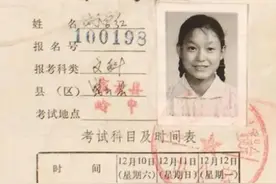 姓名
报名号 100198
报考科类 文科
县(区)
考试地点 岭中
考试科目及时间表
时间 12月10日 12月11日 12月12日
(星期六) (星期日) (星期一)